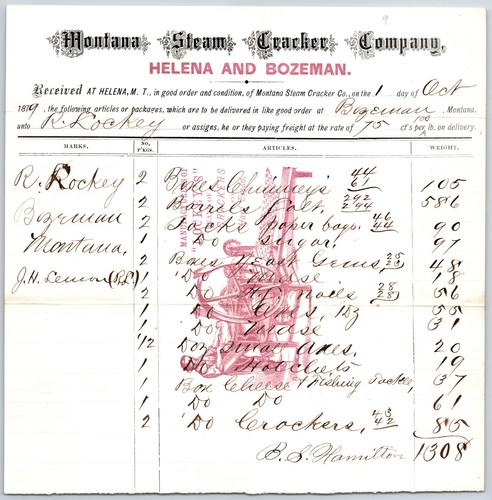 9
Montana Steam Cracker Company,
HELENA AND BOZEMAN.
Received AT HELENA, M. T., in good order and condition, of Montana Steam Cracker Co., on the 1 day of Oct
1879, the following articles or packages, which are to be delivered in like good order at Bozeman, Montana.
unto R. Rockey or assigns, he or they paying freight at the rate of 75 c's per 100 lb. on delivery.
MARKS. NO. P'KGS. ARTICLES. WEIGHT.
R. Rockey 2 Boxes Chimney's 44 61 105
Bozeman 2 Barrels Salt. 292 294 586
Montana, 2 Sacks paper bags. 46 44 90
1 Do Sugar, 97
J.H. Lemon (P.L.) 2 Boxes Yeast Gems 25 23 48
1 Do 18
2 Do nails 28 28 56
1 Do Axes, 1 Dz 55
1 Do 31
1/2 Doz Axes. 20
1 Do 19
1 Box Cheese + Fishing Tackle, 37
1 Do Do 61
2 Do Crackers, 43 42 85
B. S. Hamilton 1308